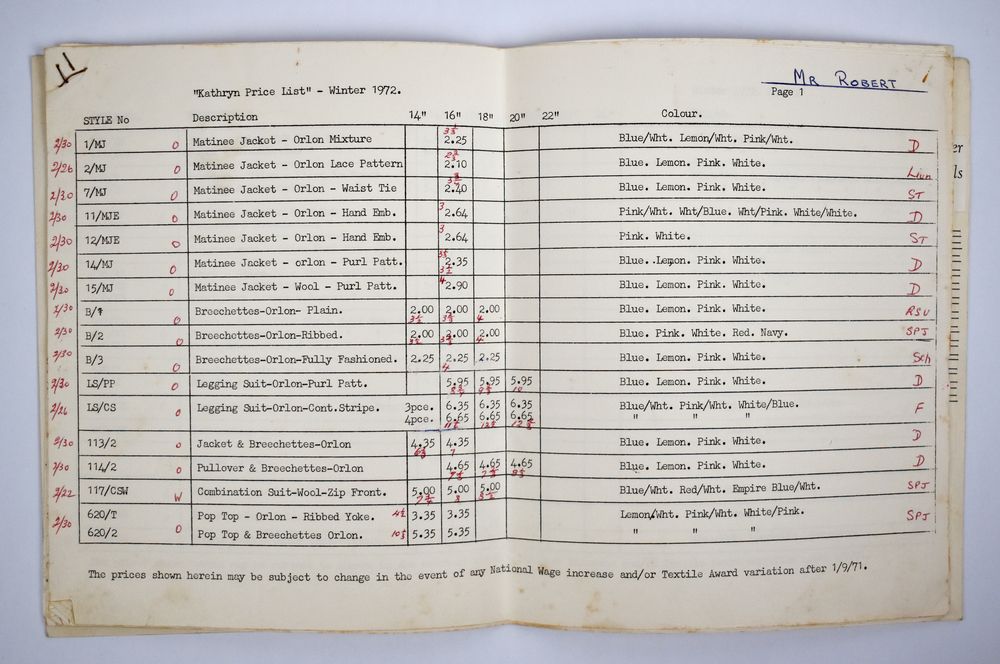 11
MR ROBERT
"Kathryn Price List" - Winter 1972.
Page 1
STYLE No Description 14" 16" 18" 20" 22" Colour.
2/30 1/MJ O Matinee Jacket - Orlon Mixture 2.25 Blue/Wht. Lemon/Wht. Pink/Wht. D
2/26 2/MJ O Matinee Jacket - Orlon Lace Pattern 2.10 Blue. Lemon. Pink. White.
2/30 7/MJ O Matinee Jacket - Orlon - Waist Tie 2.40 Blue. Lemon. Pink. White. ST
2/30 11/MJE O Matinee Jacket - Orlon - Hand Emb. 3 2.64 Pink/Wht. Wht/Blue. Wht/Pink. White/White. D
2/30 12/MJE O Matinee Jacket - Orlon - Hand Emb. 3 2.64 Pink. White. ST
2/30 14/MJ O Matinee Jacket - orlon - Purl Patt. 2.35 Blue. .Lemon. Pink. White. D
2/30 15/MJ O Matinee Jacket - Wool - Purl Patt. 4 2.90 Blue. Lemon. Pink. White. D
2/30 B/1 O Breechettes-Orlon- Plain. 2.00 2.00 2.00 Blue. Lemon. Pink. White. RSV
3½ 4
2/30 B/2 O Breechettes-Orlon-Ribbed. 2.00 2.00 2.00 Blue. Pink. White. Red. Navy. SPJ
2/30 B/3 O Breechettes-Orlon-Fully Fashioned. 2.25 2.25 2.25 Blue. Lemon. Pink. White. Sch
4
2/30 LS/PP O Legging Suit-Orlon-Purl Patt. 5.95 5.95 5.95 Blue. Lemon. Pink. White. D
10
2/26 LS/CS O Legging Suit-Orlon-Cont.Stripe. 3pce. 6.35 6.35 6.35 Blue/Wht. Pink/Wht. White/Blue. F
4pce. 6.65 6.65 6.65 " " "
113/2 O Jacket & Breechettes-Orlon 4.35 4.35 Blue. Lemon. Pink. White. D
7
2/30 114/2 O Pullover & Breechettes-Orlon 4.65 4.65 4.65 Blue. Lemon. Pink. White. D
2/22 117/CSW W Combination Suit-Wool-Zip Front. 5.00 5.00 5.00 Blue/Wht. Red/Wht. Empire Blue/Wht. SPJ
2/30 620/T Pop Top - Orlon - Ribbed Yoke. 3.35 3.35 Lemon/Wht. Pink/Wht. White/Pink. SPJ
620/2 O Pop Top & Breechettes Orlon. 5.35 5.35 " " "
The prices shown herein may be subject to change in the event of any National Wage increase and/or Textile Award variation after 1/9/71.